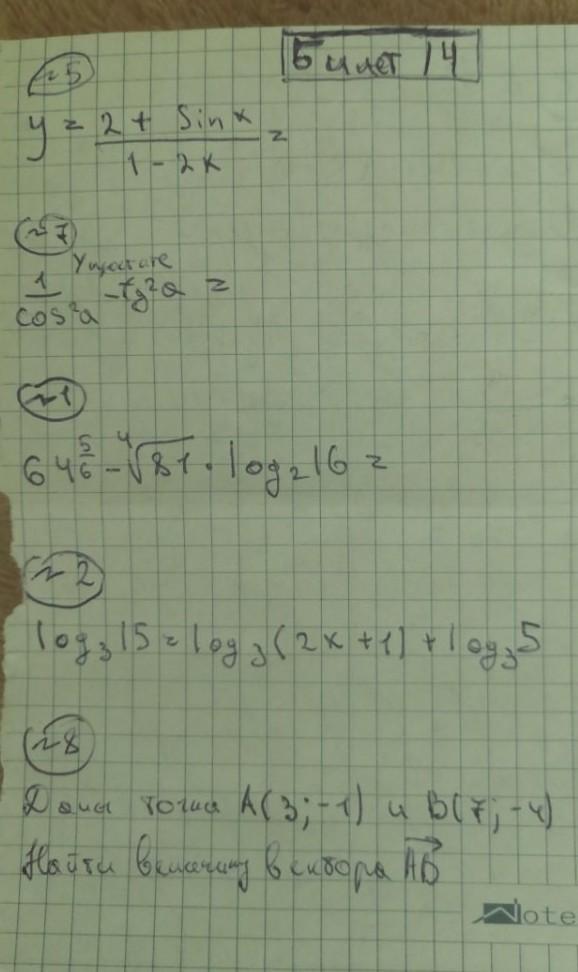 Билет 14
№5
y = (2 + Sin x)/(1 - 2x) =
№7
Упростите
1/cos²a - tg²a =
№1
64^(5/6) - ⁴√81 · log₂16 =
№2
log₃15 = log₃(2x + 1) + log₃5
№8
Даны точки A(3; -1) и B(7; -4)
Найти величину вектора AB
Note